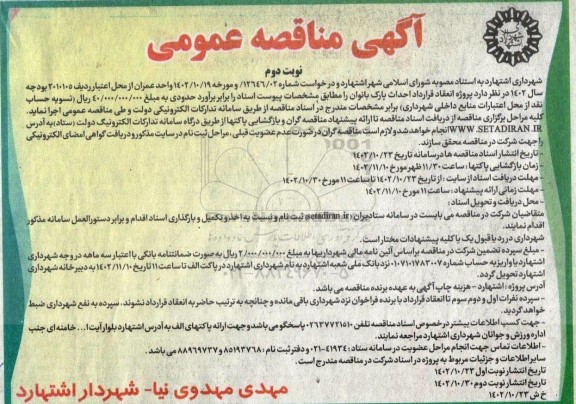 آگهی مناقصه عمومی
نوبت دوم
شهرداری اشتهارد به استناد مصوبه شورای اسلامی شهر اشتهارد و درخواست شماره ۱۲۶۴۶/۰۲ و مورخه ۱۴۰۲/۱۰/۱۹ واحد عمران از محل اعتبار ردیف ۲۰۱۰۱۰۵ بودجه
سال ۱۴۰۲ در نظر دارد پروژه انعقاد قرارداد احداث پارک بانوان را مطابق مشخصات پیوست اسناد را برابر برآورد حدودی به مبلغ ۴۰/۰۰۰/۰۰۰/۰۰۰ ریال (تسویه حساب
نقد از محل اعتبارات منابع داخلی شهرداری) برابر مشخصات مندرج در اسناد مناقصه از طریق سامانه تدارکات الکترونیکی دولت و طی مناقصه عمومی اجرا نماید.
کلیه مراحل برگزاری مناقصه از دریافت اسناد مناقصه تا ارائه پیشنهاد مناقصه گران و بازگشایی پاکتها از طریق درگاه سامانه تدارکات الکترونیک دولت (ستاد) به آدرس
WWW.SETADIRAN.IR انجام خواهد شد و لازم است مناقصه گران در صورت عدم عضویت قبلی، مراحل ثبت نام در سایت مذکور و دریافت گواهی امضای الکترونیکی
را جهت شرکت در مناقصه محقق سازند.
- تاریخ انتشار اسناد مناقصه ها در سامانه تاریخ ۱۴۰۲/۱۰/۲۳
- زمان بازگشایی پاکتها : ساعت ۱۱/۳۰ ظهر مورخ ۱۴۰۲/۱۱/۱۰
- مهلت دریافت اسناد از سایت : از تاریخ ۱۴۰۲/۱۰/۲۳ تا ساعت ۱۱ مورخ ۱۴۰۲/۱۰/۳۰
- مهلت زمانی ارائه پیشنهاد : ساعت ۱۱ مورخ ۱۴۰۲/۱۱/۱۰
- محل دریافت و تحویل اسناد:
متقاضیان شرکت در مناقصه می بایست در سامانه ستادیران (setadiran.ir) ثبت نام و نسبت به اخذ و تکمیل و بارگذاری اسناد اقدام و برابر دستورالعمل سامانه مذکور
اقدام نمایند.
شهرداری در رد یا قبول یک یا کلیه پیشنهادات مختار است.
- مبلغ سپرده تضمین شرکت در مناقصه براساس آئین نامه مالی شهرداریها به مبلغ ۲/۰۰۰/۰۰۰/۰۰۰ ریال به صورت ضمانتنامه بانکی با اعتبار سه ماهه در وجه شهرداری
اشتهارد یا واریز به حساب شماره ۰۱۰۷۱۰۱۷۸۳۰۰۷ نزد بانک ملی شعبه اشتهارد به نام شهرداری اشتهارد در پاکت الف تا ساعت ۱۱ تاریخ ۱۴۰۲/۱۱/۱۰ به دبیرخانه شهرداری
اشتهارد تحویل گردد.
آدرس پروژه : اشتهارد - هزینه چاپ آگهی به عهده برنده مناقصه می باشد.
- سپرده نفرات اول و دوم و سوم تا انعقاد قرارداد با برنده فراخوان نزد شهرداری باقی مانده و چنانچه به ترتیب حاضر به انعقاد قرارداد نشوند، سپرده به نفع شهرداری ضبط
خواهد گردید.
- جهت کسب اطلاعات بیشتر در خصوص اسناد مناقصه تلفن ۰۲۶۳۷۷۲۱۵۱۰ پاسخگو می باشد و جهت ارائه پاکتهای الف به آدرس اشتهارد بلوار آیت ا... خامنه ای جنب
اداره ورزش و جوانان شهرداری اشتهارد مراجعه نمایند.
- اطلاعات تماس جهت انجام مراحل عضویت در سامانه ستاد: ۴۱۹۳۴-۰۲۱ و دفتر ثبت نام : ۸۵۱۹۳۷۶۸ و ۸۸۹۶۹۷۳۷ می باشد.
سایر اطلاعات و جزئیات مربوط به پروژه در اسناد شرکت در مناقصه مندرج است.
تاریخ انتشار نوبت اول ۱۴۰۲/۱۰/۲۳
تاریخ انتشار نوبت دوم ۱۴۰۲/۱۰/۳۰
خ ش ۱۴۰۲/۱۰/۲۳
مهدی مهدوی نیا- شهردار اشتهارد